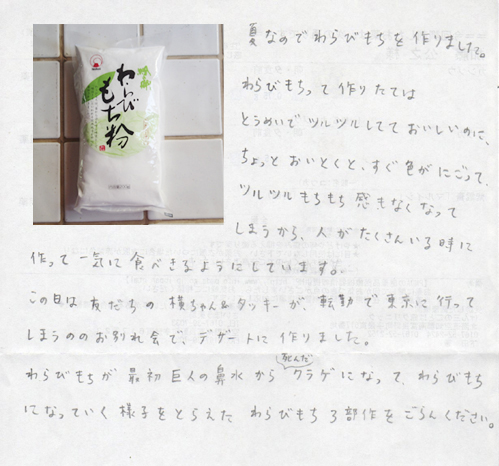 吟印
わらび
もち粉
夏なのでわらびもちを作りました。
わらびもちって作りたては
とうめいでツルツルしてておいしいのに、
ちょっとおいとくと、すぐ色がにごって、
ツルツルもちもち感もなくなって
しまうから、人がたくさんいる時に
作って一気に食べきるようにしています。
この日は友だちの横ちゃん&タッキーが、転勤で東京に行って
しまうののお別れ会で、デザートに作りました。
死んだ
わらびもちが最初巨人の鼻水からクラゲになって、わらびもち
になっていく様子をとらえたわらびもち3部作をごらんください。